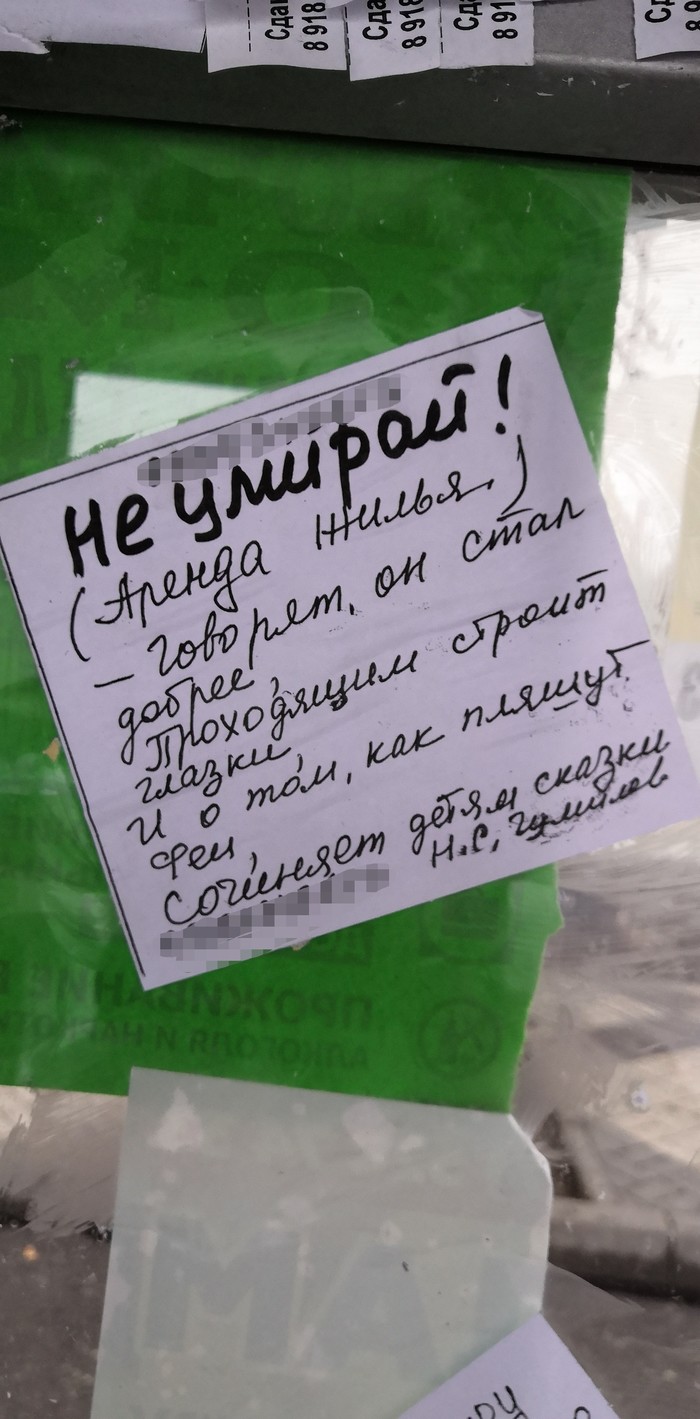 Сдаю
8 918
Сда
8 918
Сда
8 91
Сд
8 9
Не умирай!
(Аренда жилья.)
– Говорят, он стал
добрее,
Проходящим строит
глазки,
И о том, как пляшут
феи,
Сочиняет детям сказки
Н.С. Гумилов
ПРОЖИВАНИЕ
МА